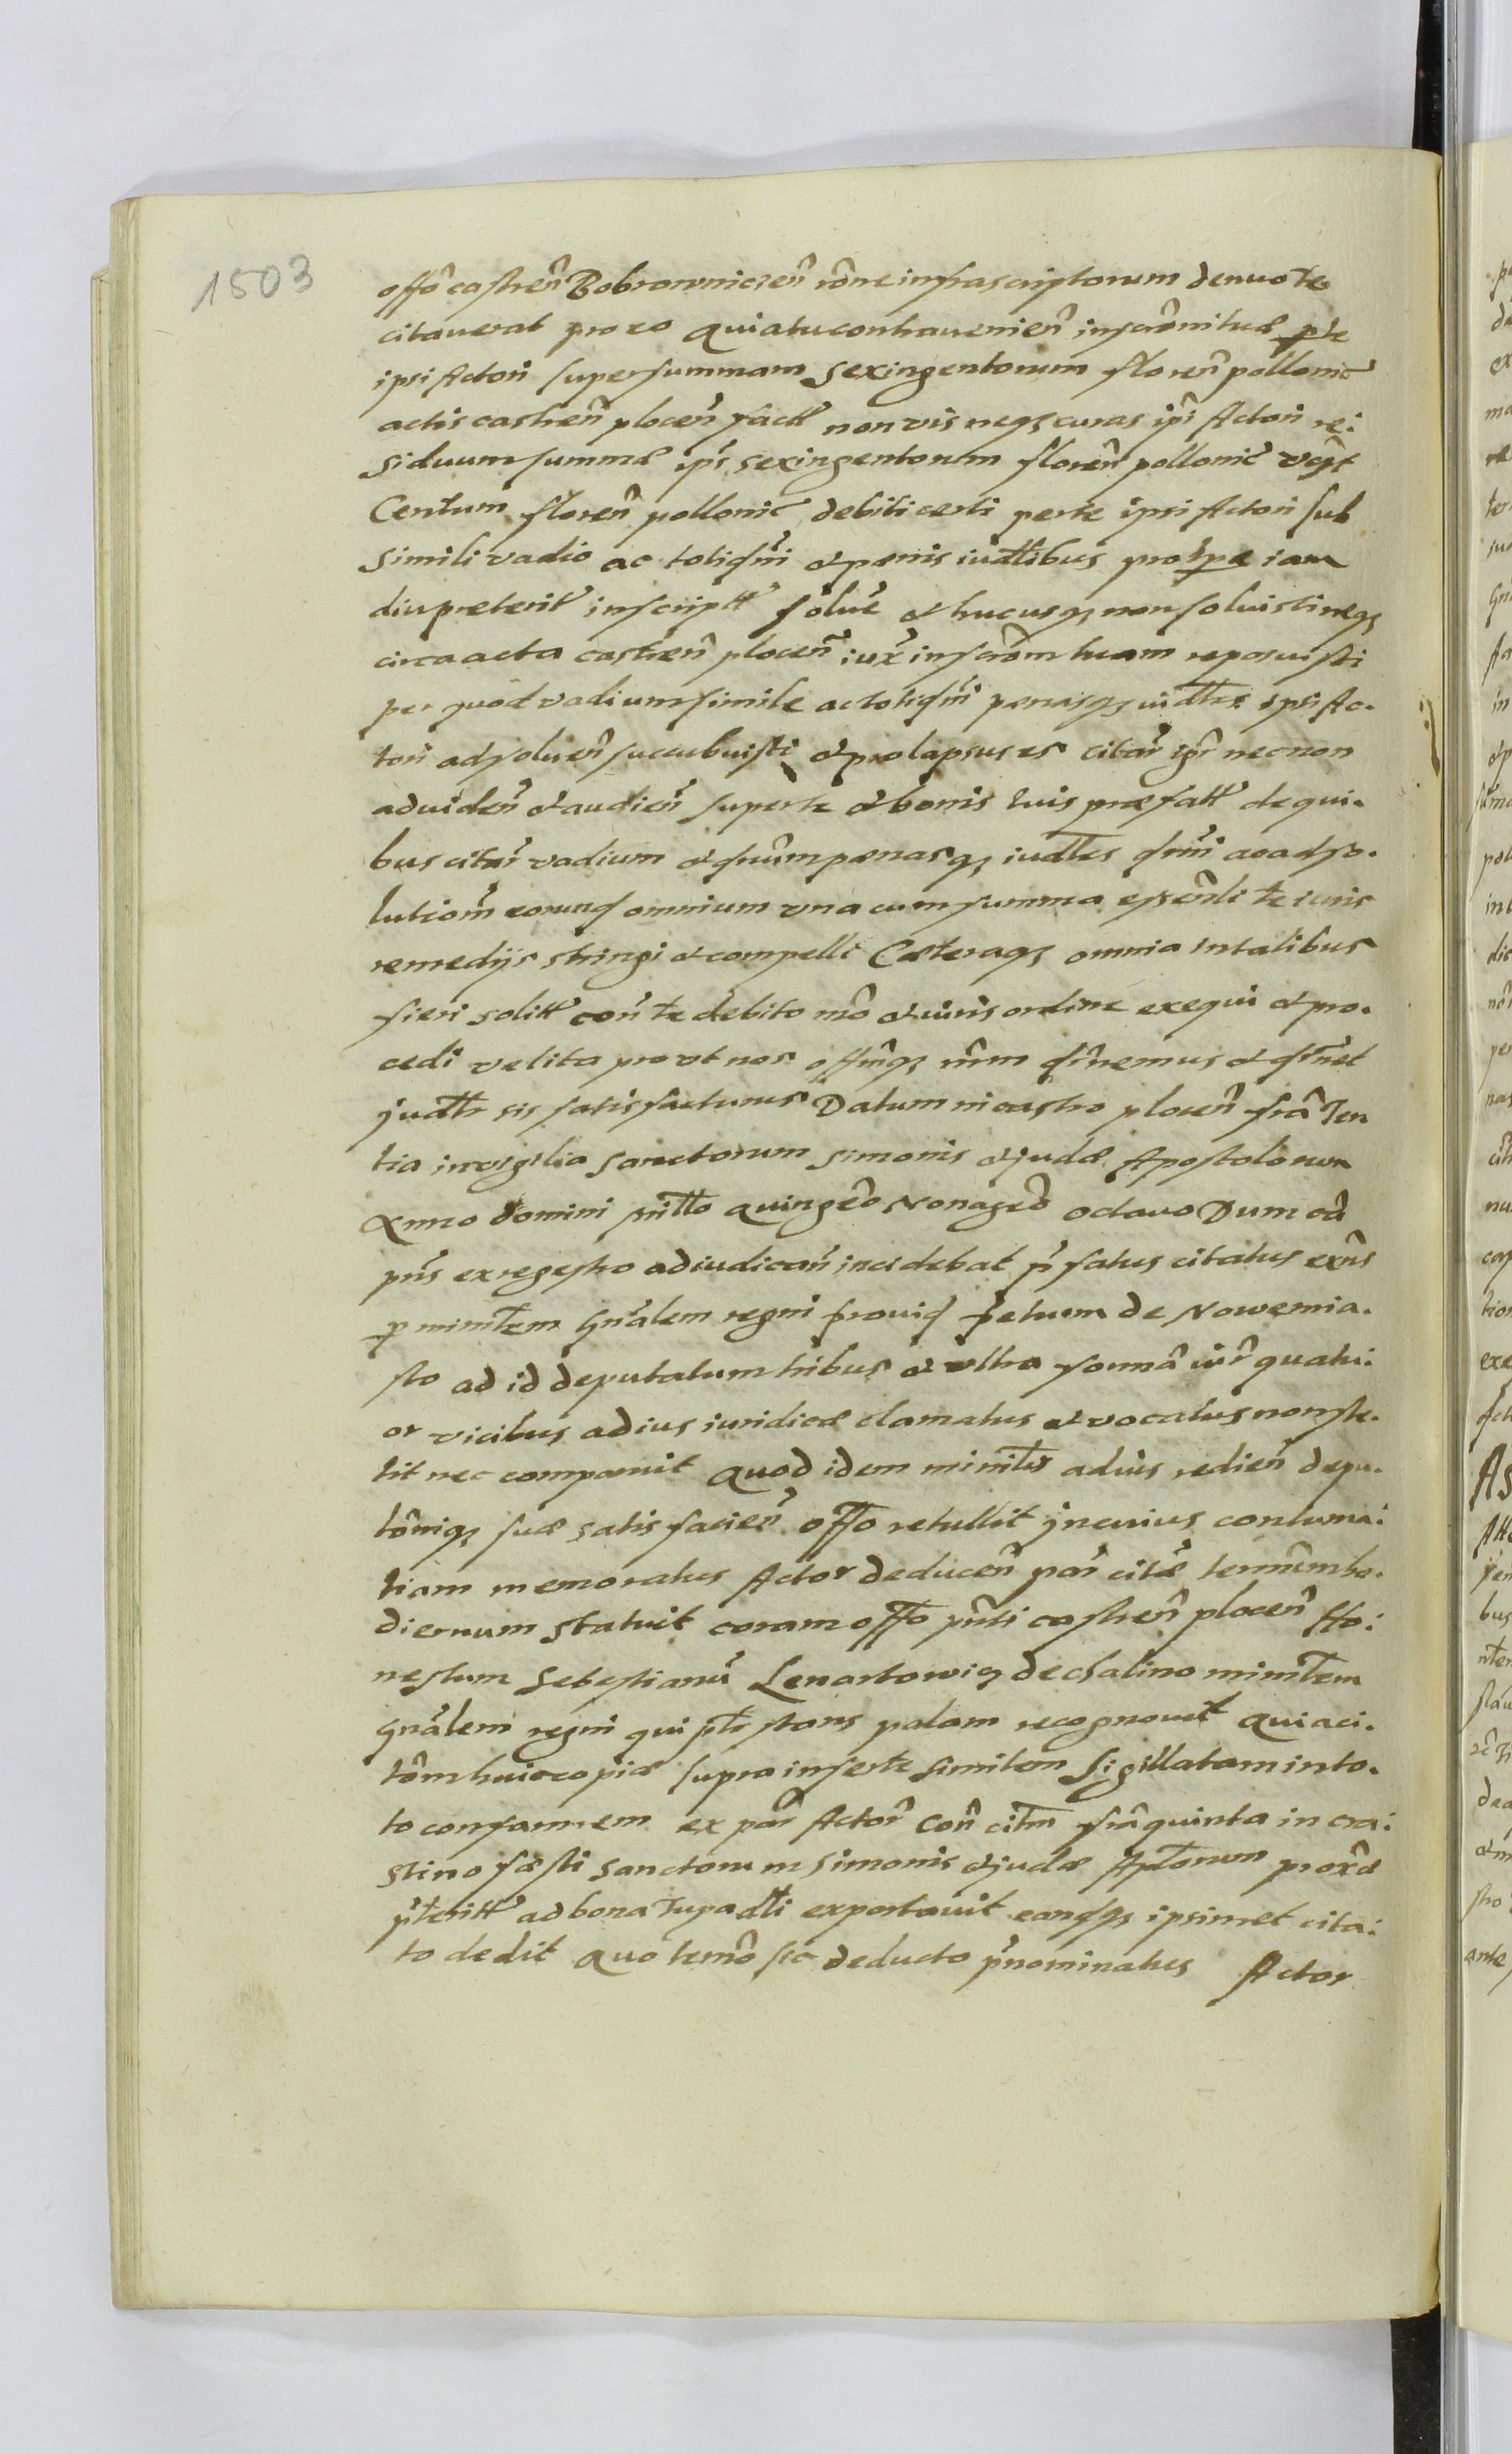 1503
offo castren Bobrownicien rône infrascriptorum denuo te
citaverat pro eo quia tu contravenien inscrôni tuæ per te
ipsi Actori super summam sexingentorum floren pollonic
actis castren plocen fact non vis neqз curas ipi Actori re:
siduum summæ ips sexingentorum floren pollonic vczt
Centum floren pollonic debiti certi per te ipsi Actori sub
simili vadio ac totidm et pænis iudlibus pro tpe iam
diu præterit inscript solve et hucusqз non solvisti neqз
circa acta castren plocen iux inscrôm tuam reposuisti
per quod vadium simile ac totidm pænasqз iudles ipsi Ac-
tori ad solven succubuisti et prolapsus es citar ipr necnon
ad viden et audien super te et bonis tuis præfatt de qui-
bus citar vadium et damnum pænasqз iudles dni ac ad so-
lutiom eorund omnium una cum summa essenli te iuris
remedijs stringi et compelli Cæteraqз omnia in talibus
fieri solitt con te debito mô et iuris ordine exequi et pro-
cedi velit a prout nos offmqз nrm dnemus et dnet
judlr sis satisfacturus Datum in castro plocen fria Ter
tia in vigilia sanctorum simonis et judæ Apostolorum
Anno domini millo quingeo Nonageo octavo Dum câ
pns ex regestro adiudican incidebat pfatus citatus exns
p ministem gnalem regni provid petrum de Nowemia-
sto ad id deputatum tribus et ultra formâ iur quatu:
or vicibus ad ius iuridicæ clamatus et vocatus non ste-
tit nec comparuit Quod idem minister ad ius redien depu-
tôniqз suæ satisfacien offo retullit jn cuius contuma:
tiam memoratus Actor deducen par citæ termum ho-
diernum statuit coram offo pnti castren plocen Ho:
nestum Sebestianu Lenartowiз de chalino ministem
gnalem regni qui plr stans palam recognovit quia ci-
tôm huic copiæ supra insertæ similem Sigillatam in to-
to conformem ex par Actor con citm fria quinta in cra:
stino fæsti sanctorum simonis et judæ Aplorum proxæ
pteritt ad bona Tupadli exportavit eandqз ipsimet cita:
to dedit quo termo sic deducto pnominatus Actor